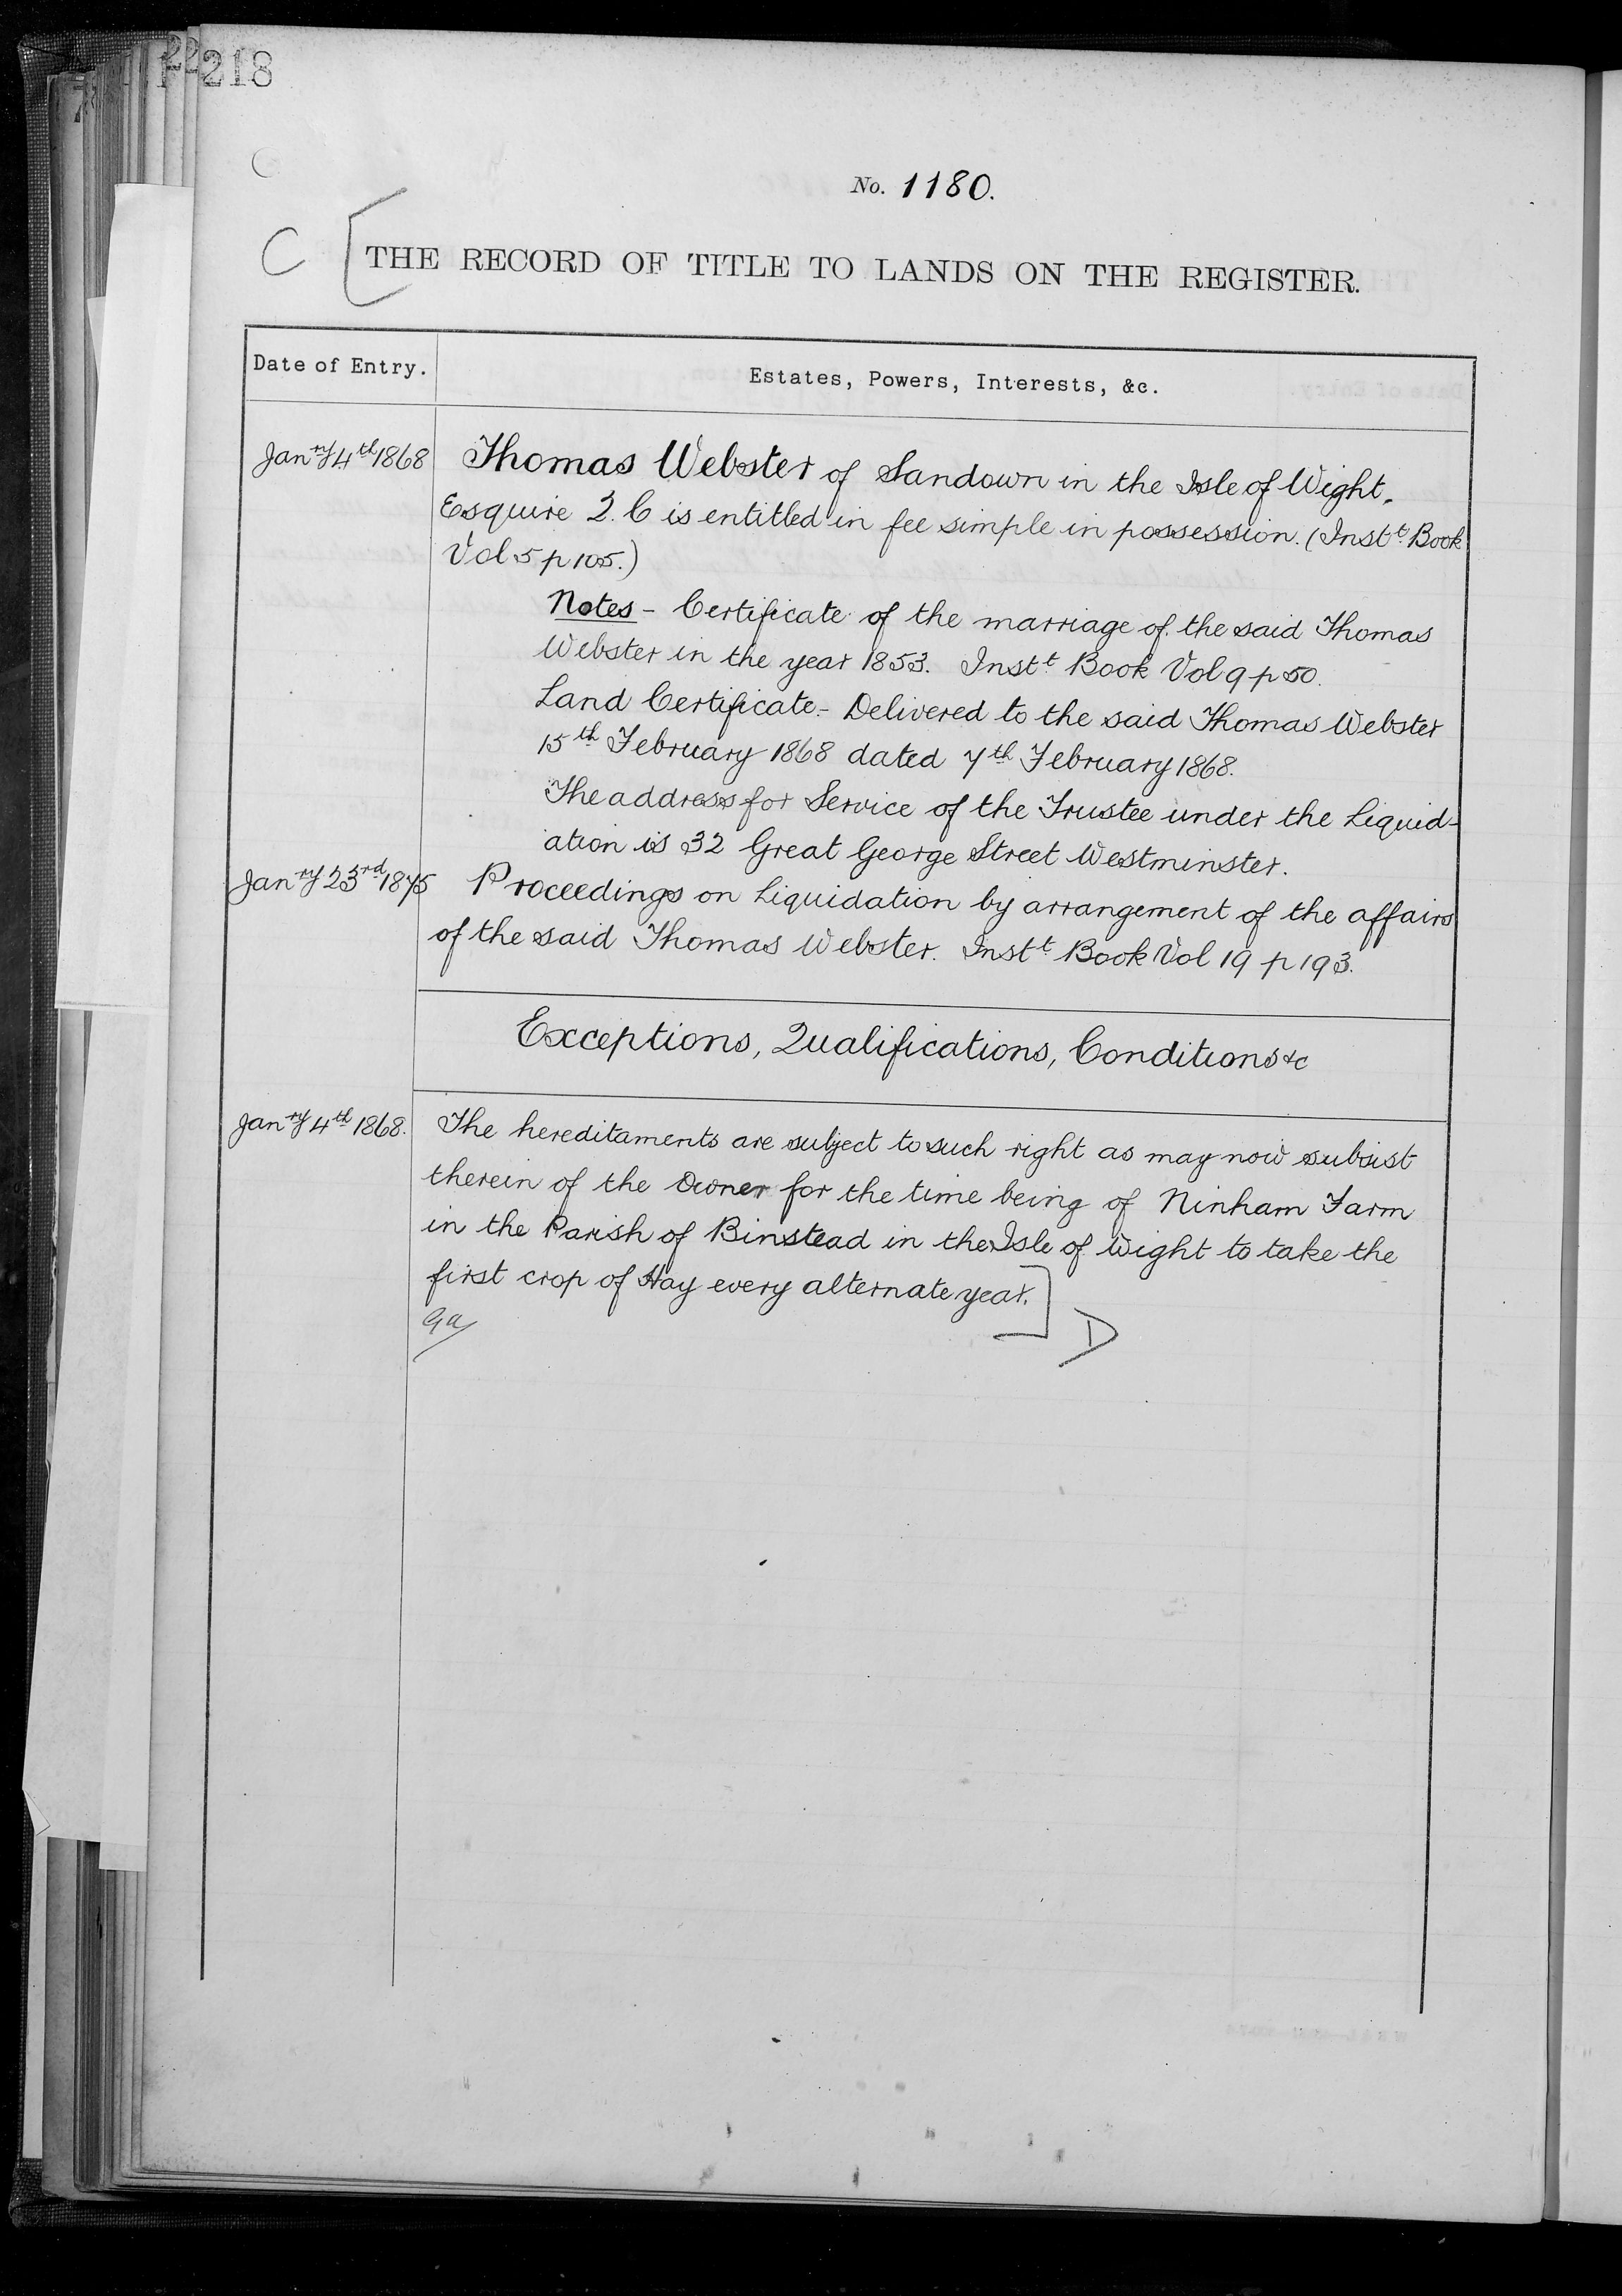 218
No. 1180.
C
THE RECORD OF TITLE TO LANDS ON THE REGISTER.
Date of Entry.
Estates, Powers, Interests, &c.
Janry 4th 1868
Thomas Webster of Sandown in the Isle of Wight,
Esquire Q.C is entitled in fee simple in possession. (Instt. Book
Vol 5 p 105.)
Notes - Certificate of the marriage of the said Thomas
Webster in the year 1853. Instt. Book Vol 9 p 50.
Land Certificate - Delivered to the said Thomas Webster
15th February 1868 dated 7th February 1868.
The address for Service of the Trustee under the Liquid-
ation is 32 Great George Street Westminster.
Janry 23rd 1875
Proceedings on Liquidation by arrangement of the affairs
of the said Thomas Webster. Instt Book Vol 19 p 193.
Exceptions, Qualifications, Conditions &c
Janry 4th 1868.
The hereditaments are subject to such right as may now subsist
therein of the Owner for the time being of Ninham Farm
in the Parish of Binstead in the Isle of Wight to take the
first crop of Hay every alternate year.
D